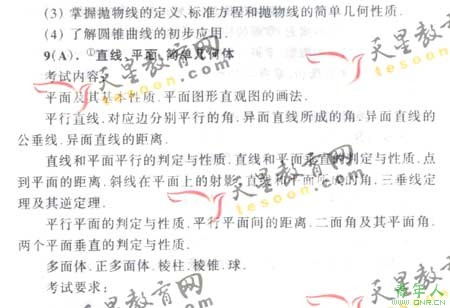 (3) 掌握抛物线的定义、标准方程和抛物线的简单几何性质.
(4) 了解圆锥曲线的初步应用.
9(A). ①直线、平面、简单几何体
考试内容:
平面及其基本性质.平面图形直观图的画法.
平行直线.对应边分别平行的角.异面直线所成的角.异面直线的
公垂线.异面直线的距离.
直线和平面平行的判定与性质.直线和平面垂直的判定与性质.点
到平面的距离.斜线在平面上的射影.直线和平面所成的角.三垂线定
理及其逆定理.
平行平面的判定与性质.平行平面间的距离.二面角及其平面角.
两个平面垂直的判定与性质.
多面体.正多面体.棱柱.棱锥.球.
考试要求:
天星教育网
tesoon
天星教育网
tesoon
天星教育网
tesoon
青年人
www.QNR.CN